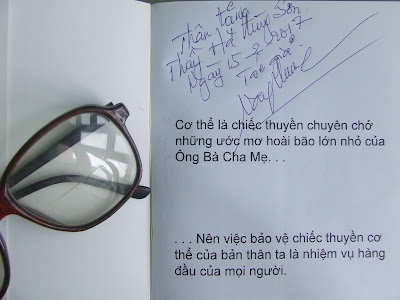 Thân tặng
Thầy Hà Hùng Sơn
Ngày 15-9-2017
Tác giả
Cơ thể là chiếc thuyền chuyên chở
những ước mơ hoài bão lớn nhỏ của
Ông Bà Cha Mẹ. . .
. . . Nên việc bảo vệ chiếc thuyền cơ
thể của bản thân ta là nhiệm vụ hàng
đầu của mọi người.